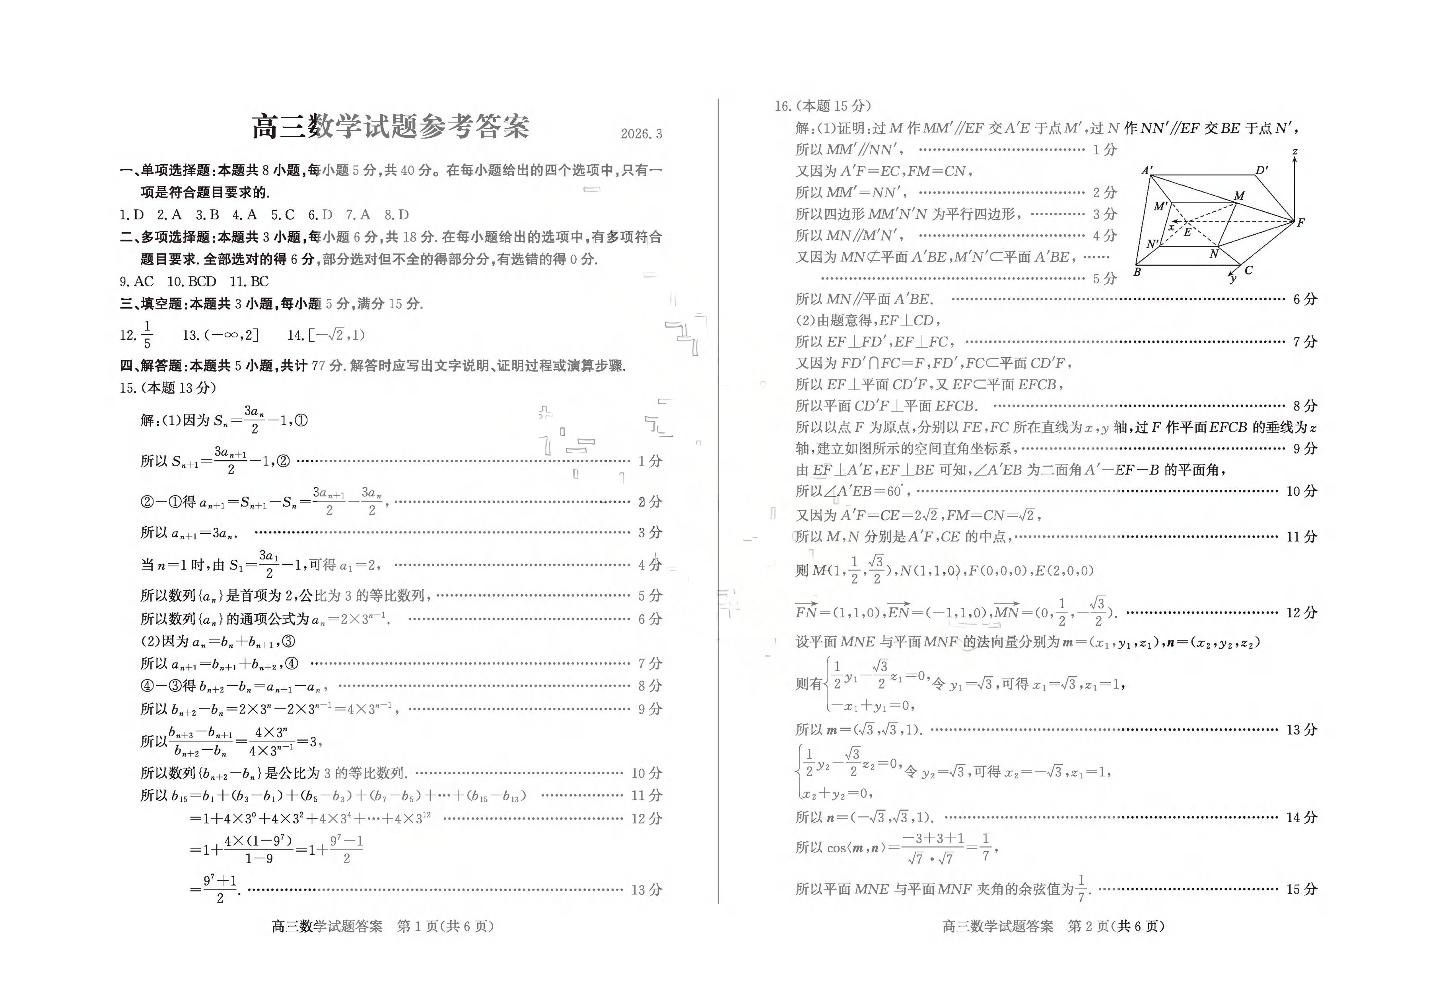 高三数学试题参考答案
2026.3
一、单项选择题:本题共8小题,每小题5分,共40分。在每小题给出的四个选项中,只有一
项是符合题目要求的.
1.D 2.A 3.B 4.A 5.C 6.D 7.A 8.D
二、多项选择题:本题共3小题,每小题6分,共18分.在每小题给出的选项中,有多项符合
题目要求.全部选对的得6分,部分选对但不全的得部分分,有选错的得0分.
9.AC 10.BCD 11.BC
三、填空题:本题共3小题,每小题5分,满分15分.
12. 1/5 13.(-∞,2] 14.[-√2,1)
四、解答题:本题共5小题,共计77分.解答时应写出文字说明、证明过程或演算步骤.
15.(本题13分)
解:(1)因为Sₙ=3aₙ/2-1,①
所以Sₙ₊₁=3aₙ₊₁/2-1,② ……… 1分
②-①得aₙ₊₁=Sₙ₊₁-Sₙ=3aₙ₊₁/2-3aₙ/2, ……… 2分
所以aₙ₊₁=3aₙ. ……… 3分
当n=1时,由S₁=3a₁/2-1,可得a₁=2, ……… 4分
所以数列{aₙ}是首项为2,公比为3的等比数列, ……… 5分
所以数列{aₙ}的通项公式为aₙ=2×3ⁿ⁻¹. ……… 6分
(2)因为aₙ=bₙ+bₙ₊₁,③
所以aₙ₊₁=bₙ₊₁+bₙ₊₂,④ ……… 7分
④-③得bₙ₊₂-bₙ=aₙ₊₁-aₙ, ……… 8分
所以bₙ₊₂-bₙ=2×3ⁿ-2×3ⁿ⁻¹=4×3ⁿ⁻¹, ……… 9分
所以(bₙ₊₃-bₙ₊₁)/(bₙ₊₂-bₙ)=(4×3ⁿ)/(4×3ⁿ⁻¹)=3,
所以数列{bₙ₊₂-bₙ}是公比为3的等比数列. ……… 10分
所以b₁₅=b₁+(b₃-b₁)+(b₅-b₃)+(b₇-b₅)+…+(b₁₅-b₁₃) ……… 11分
=1+4×3⁰+4×3²+4×3⁴+…+4×3¹² ……… 12分
=1+4×(1-9⁷)/(1-9)=1+(9⁷-1)/2
=(9⁷+1)/2. ……… 13分
高三数学试题答案 第1页(共6页)
16.(本题15分)
解:(1)证明:过M作MM′∥EF交A′E于点M′,过N作NN′∥EF交BE于点N′,
所以MM′∥NN′, ……… 1分
又因为A′F=EC,FM=CN,
所以MM′=NN′, ……… 2分
所以四边形MM′N′N为平行四边形, ……… 3分
所以MN∥M′N′, ……… 4分
又因为MN⊄平面A′BE,M′N′⊂平面A′BE, ……
……… 5分
A′ D′ z M M′ x E F N′ N B C y
所以MN∥平面A′BE. ……… 6分
(2)由题意得,EF⊥CD,
所以EF⊥FD′,EF⊥FC, ……… 7分
又因为FD′∩FC=F,FD′,FC⊂平面CD′F,
所以EF⊥平面CD′F,又EF⊂平面EFCB,
所以平面CD′F⊥平面EFCB. ……… 8分
所以以点F为原点,分别以FE,FC所在直线为x,y轴,过F作平面EFCB的垂线为z
轴,建立如图所示的空间直角坐标系, ……… 9分
由EF⊥A′E,EF⊥BE可知,∠A′EB为二面角A′-EF-B的平面角,
所以∠A′EB=60°, ……… 10分
又因为A′F=CE=2√2,FM=CN=√2,
所以M,N分别是A′F,CE的中点, ……… 11分
则M(1,1/2,√3/2),N(1,1,0),F(0,0,0),E(2,0,0)
FN→=(1,1,0),EN→=(-1,1,0),MN→=(0,1/2,-√3/2). ……… 12分
设平面MNE与平面MNF的法向量分别为m=(x₁,y₁,z₁),n=(x₂,y₂,z₂)
则有{1/2y₁-√3/2z₁=0, -x₁+y₁=0, 令y₁=√3,可得x₁=√3,z₁=1,
所以m=(√3,√3,1). ……… 13分
{1/2y₂-√3/2z₂=0, x₂+y₂=0, 令y₂=√3,可得x₂=-√3,z₁=1,
所以n=(-√3,√3,1). ……… 14分
所以cos⟨m,n⟩=(-3+3+1)/(√7·√7)=1/7,
所以平面MNE与平面MNF夹角的余弦值为1/7. ……… 15分
高三数学试题答案 第2页(共6页)